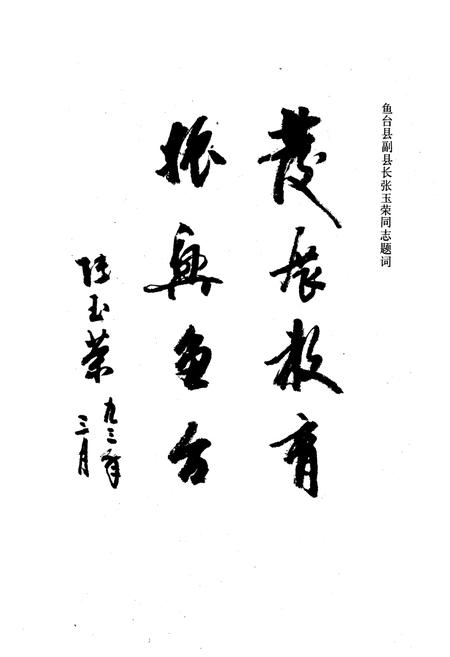 鱼台县副县长张玉荣同志题词
發展教育
振興鱼台
张玉荣
九三年
三月